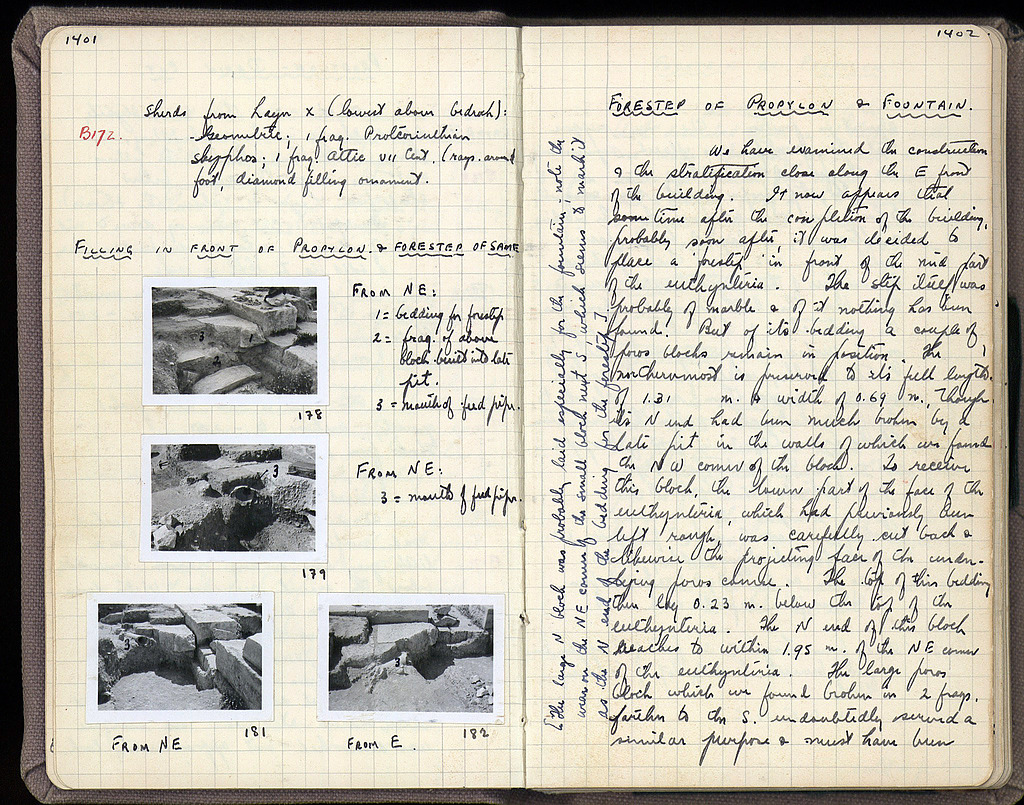 1401
sherds from Layer X (lowest above bedrock):
B172.
- Geometric; 1 frag. Protcorinthian
skyphos; 1 frag. Attic VII Cent. (rays around
foot, diamond filling ornament.
FILLING IN FRONT OF PROPYLON & FORESTEP OF SAME
FROM NE:
1 = bedding for forestep
2 = frag. of above
block built into late
pit.
3 = mouth of feed pipe.
178
FROM NE:
3 = mouth of feed pipe.
179
FROM NE
181
FROM E.
182
1402
FORESTEP OF PROPYLON & FOUNTAIN.
We have examined the construction
& the stratification close along the E front
of the building. It now appears that
sometime after the completion of the building,
probably soon after, it was decided to
place a 'forestep' in front of the mid part
of the euthynteria. The step itself was
probably of marble & of it nothing has been
found. But of its bedding a couple of
poros blocks remain in position. The
northernmost is preserved to its full length
of 1.31 m. & width of 0.69 m, though
its N end had been much broken by a
late pit in the walls of which we found
the NW corner of the block. To receive
this block, the lower part of the face of the
euthynteria, which had previously been
left rough, was carefully cut back &
likewise the projecting face of the under-
lying poros course. The top of this bedding
then lay 0.23 m. below the top of the
euthynteria. The N end of this block
reaches to within 1.95 m. of the NE corner
of the euthynteria. The large poros
block which we found broken in 2 frags.
farther to the S. undoubtedly served a
similar purpose & must have been
[The large N block was probably laid especially for the fountain; note the
wear on the NE corner of the small block next S, which seems to mark it
as the N end of the bedding for the forestep.]